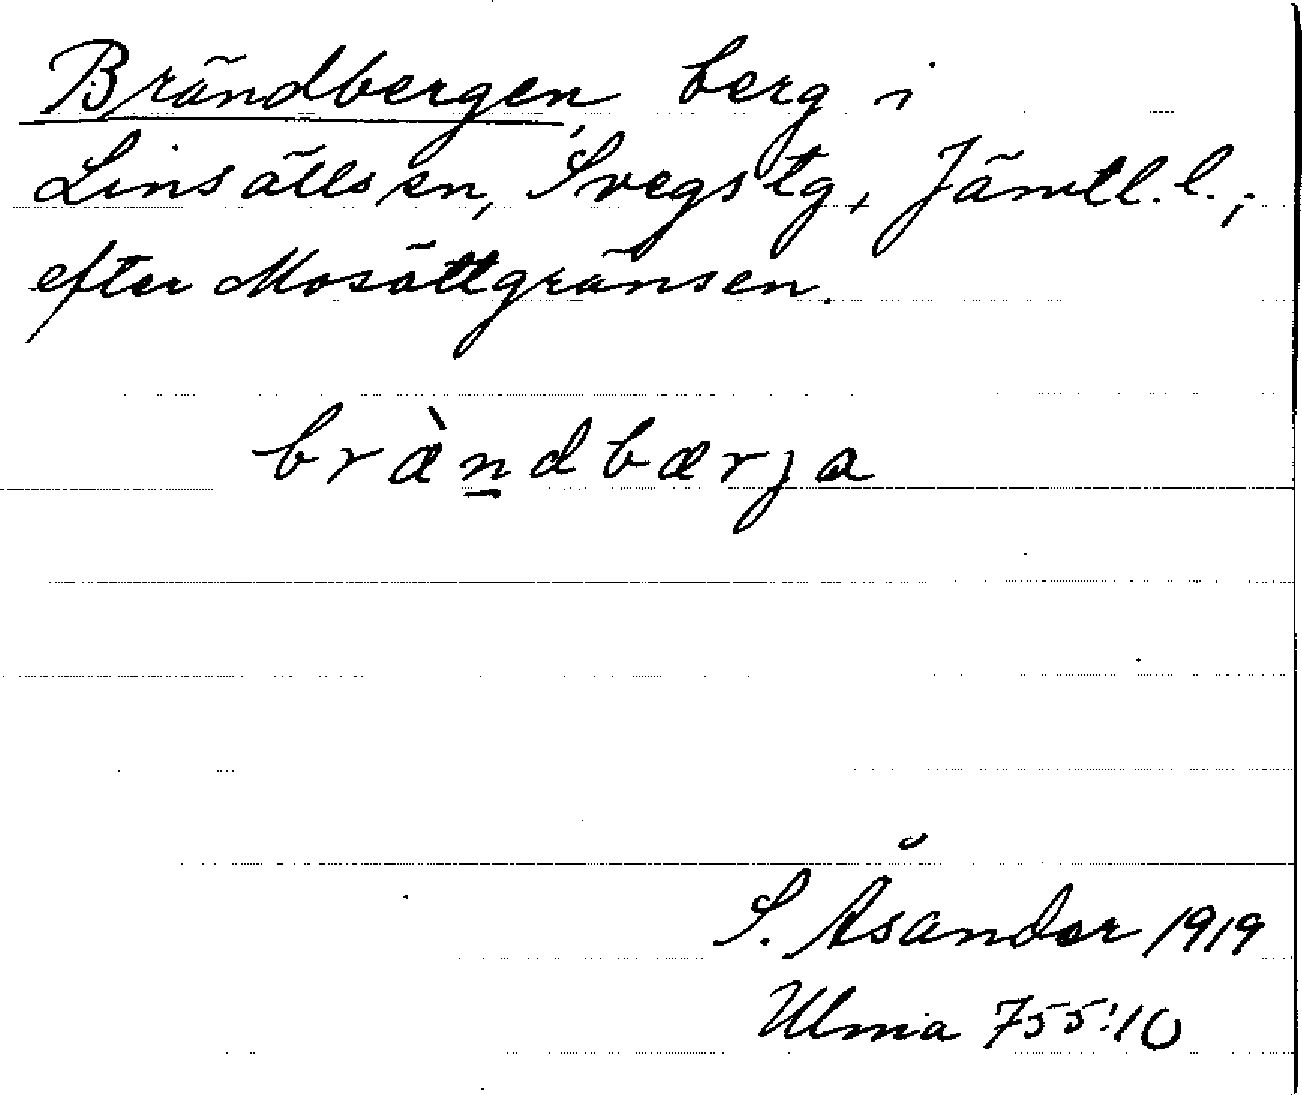 Brändbergen, berg i
Linsälls sn, Svegs tg, Jämtl. l.;
efter Mosättgränsen.
bræ̀n̲dbærja
S. Åsander 1919
Ulma 755:10